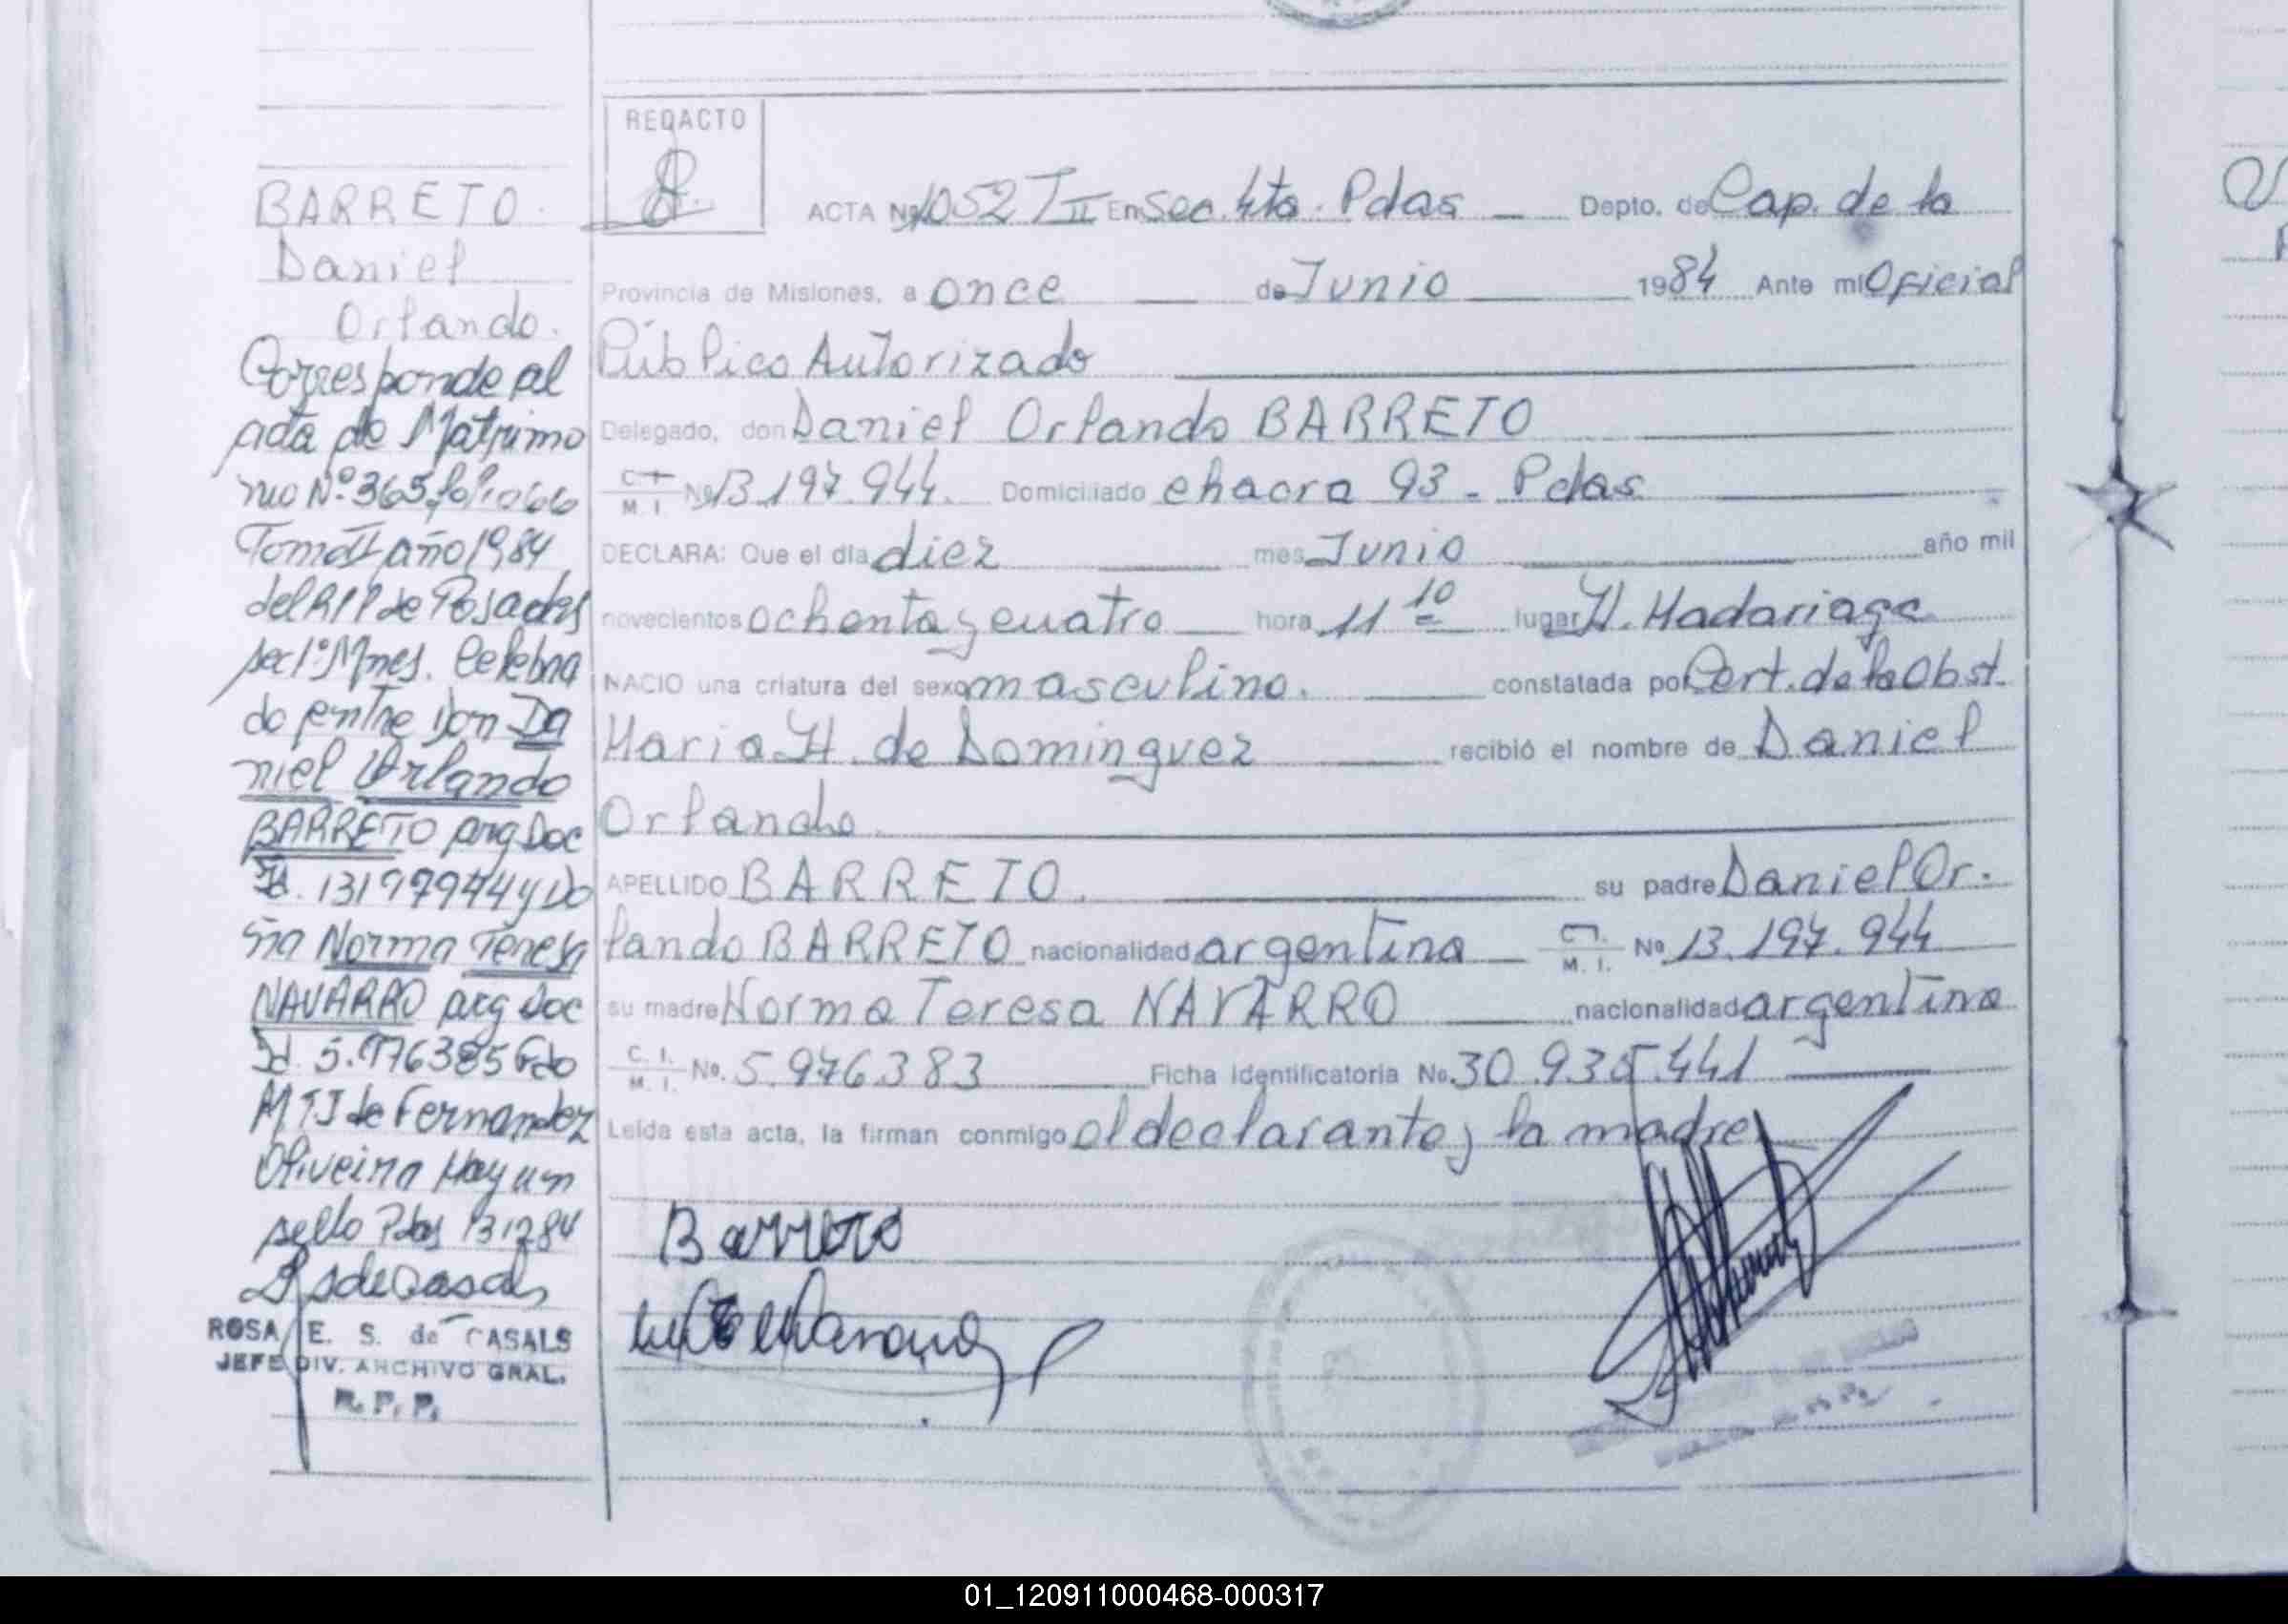 BARRETO.
Daniel
Orlando.
Corresponde al
acta de Matrimo
nio Nº 365 folio
Tomo II año 1984
del RPP de Posadas
sec 1º Mnes. Celebra
do entre Don Da
niel Orlando
BARRETO arg Doc
Id. 13197944 y Do
ña Norma Teresa
NAVARRO arg Doc
Id. 5.976385 Fdo
MTJ de Fernandez
Oliveira Hay un
sello Pdas 131284
ROSA E. S. de CASALS
JEFE DIV. ARCHIVO GRAL.
R. P. P.
REDACTO
ACTA Nº 1052 T II En Sec. 4ta. Pdas Depto. de Cap. de la
Provincia de Misiones, a once de Junio 1984 Ante mi Oficial
Público Autorizado
Delegado, don Daniel Orlando BARRETO
C.I. M. I. Nº 13.197.944. Domiciliado chacra 93 - Pdas.
DECLARA: Que el día diez mes Junio año mil
novecientos ochenta y cuatro hora 11 10 lugar H. Madariaga
NACIO una criatura del sexo masculino. constatada por Cert. de la Obst.
Maria H. de Dominguez recibió el nombre de Daniel
Orlando.
APELLIDO BARRETO. su padre Daniel Or.
lando BARRETO nacionalidad argentina C.I. M. I. Nº 13.197.944
su madre Norma Teresa NAVARRO nacionalidad argentina
C. I. M. I. Nº. 5.976.383 Ficha identificatoria Nº. 30.935.441
Leída esta acta, la firman conmigo el declarante y la madre
Barreto
01_120911000468-000317